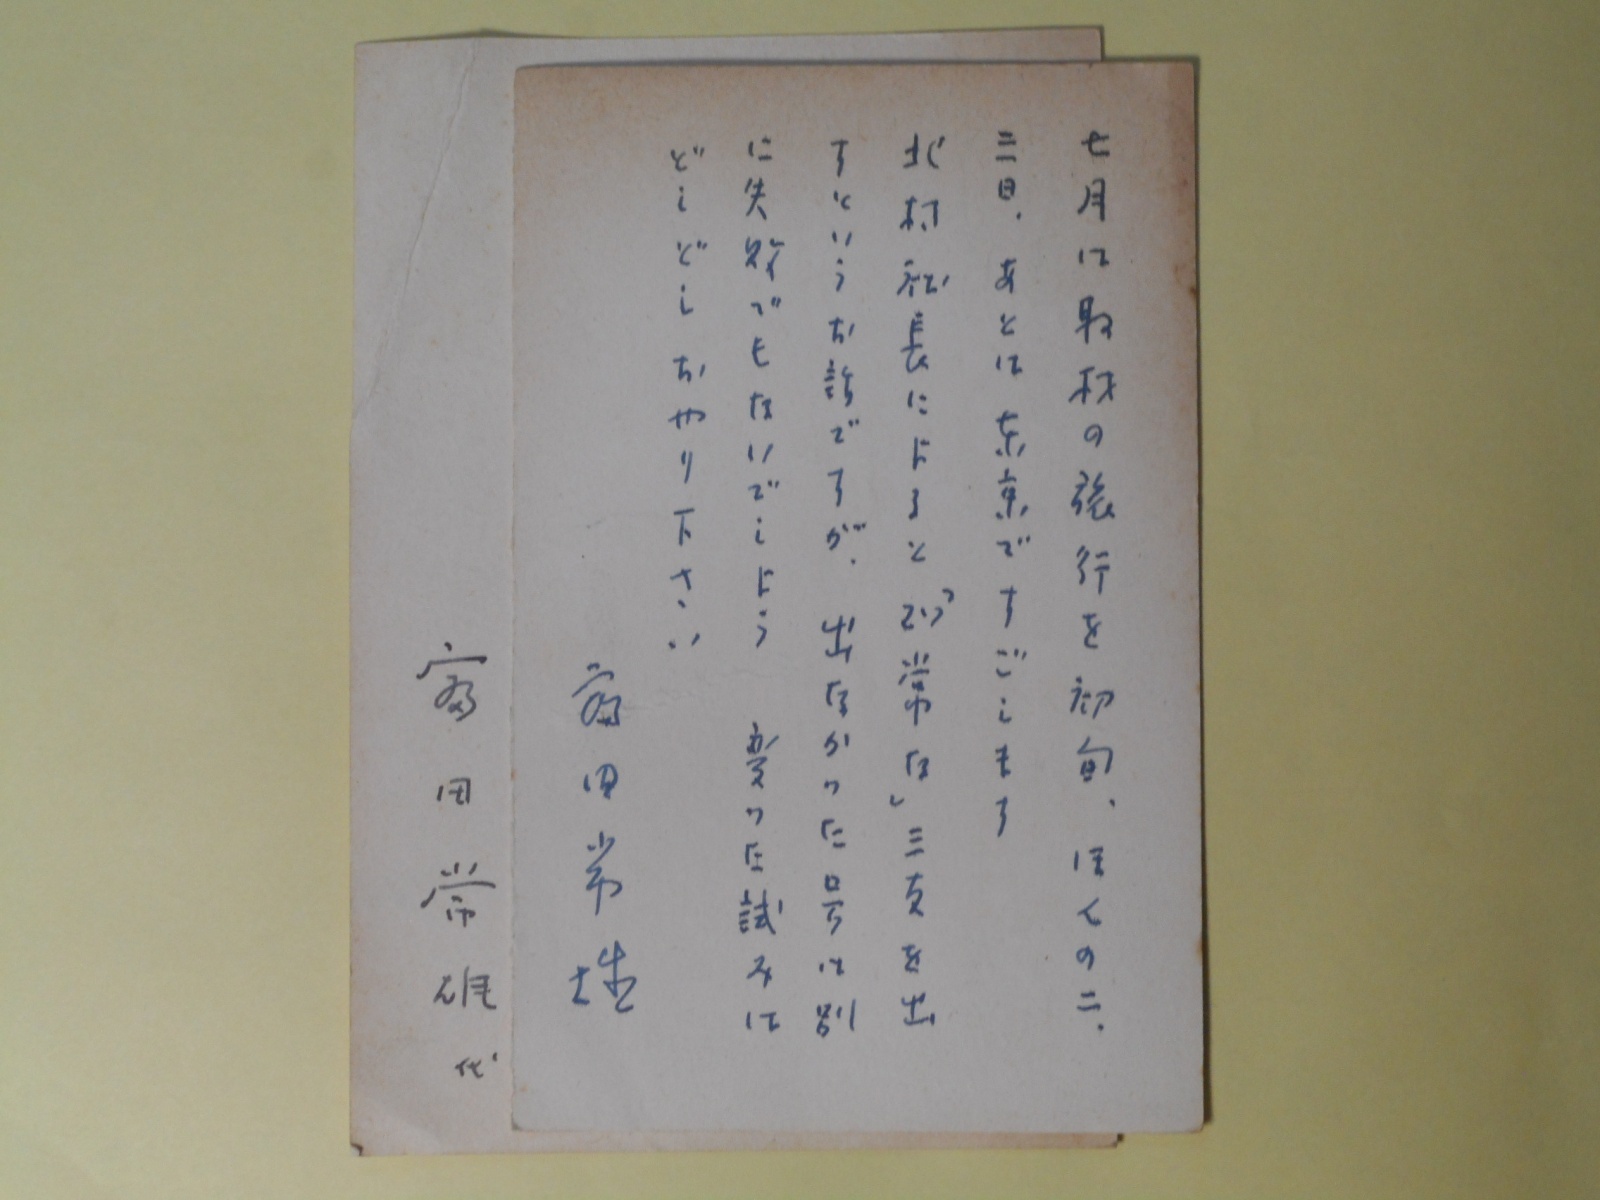 七月に取材の旅行を初旬、ほんの二、
三日、あとは東京ですごします
北村社長によると 常な」 を出
すというお話ですが、出なかった号は別
に失敗でもないでしょう 変った試みは
どしどしおやり下さい
富田常雄
富田常雄
代